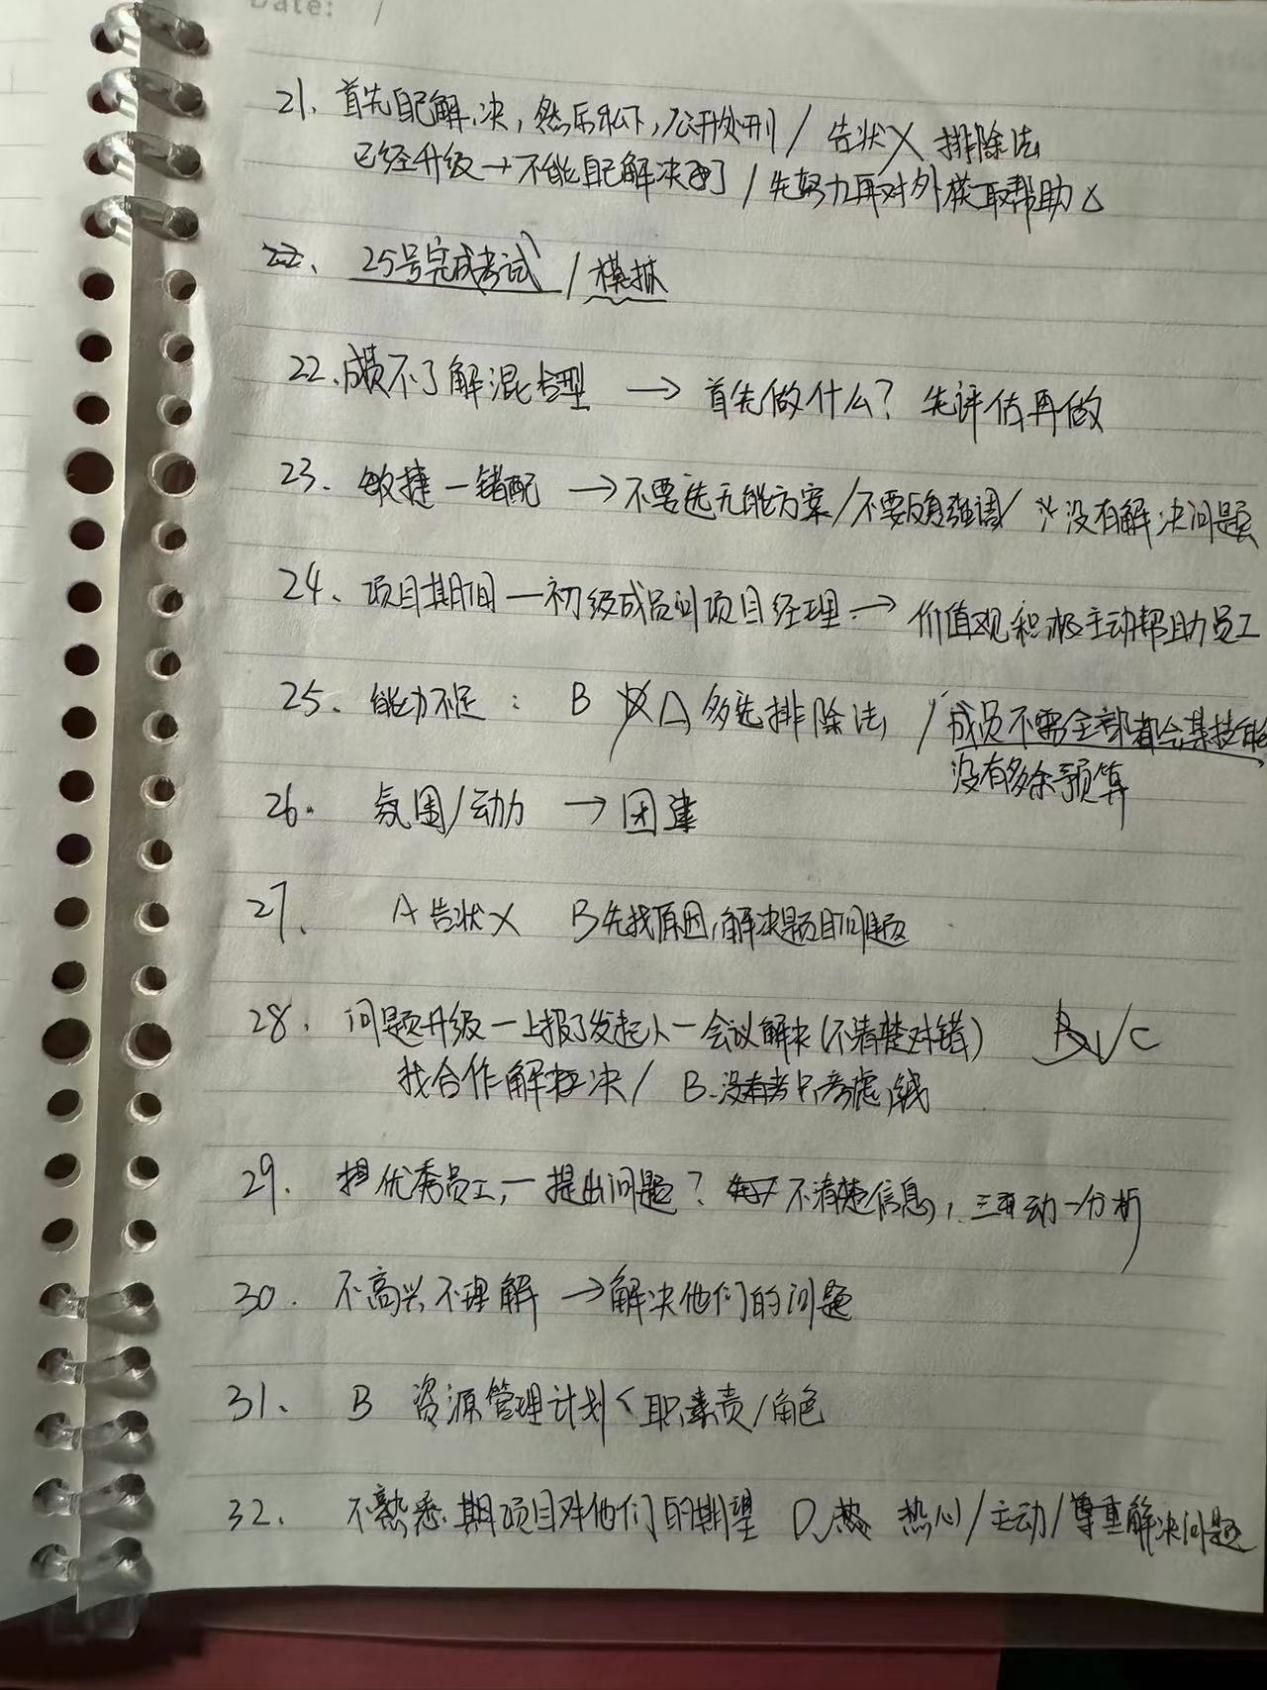 Date: /
21. 首先自己解决，然后私下，公开处刑 / 告状X 排除法
已经升级→不能自己解决了 / 先努力再对外获取帮助△
22、 25号完成考试 / 模拟
22. 成员不了解混合型 → 首先做什么? 先评估再做
23. 敏捷一错配 →不要选无能方案/不要反复强调/ 没有解决问题
24、 项目期间一初级成员问项目经理 → 价值观积极主动帮助员工
25、 能力不足： B A 多选排除法 / 成员不需全部都会某技能
没有多余预算
26. 氛围/动力 → 团建
27. A告状X B先找原因,解决题目问题
28. 问题升级一上报了发起人一会议解决(不清楚对错) B√C
找合作解决 / B.没有 考虑
29. 优秀员工,一提出问题? 不清楚信息, 三动一分析
30. 不高兴不理解 →解决他们的问题
31、 B 资源管理计划<职责/角色
32. 不熟悉 项目对他们的期望 D 热心/主动/尊重解决问题